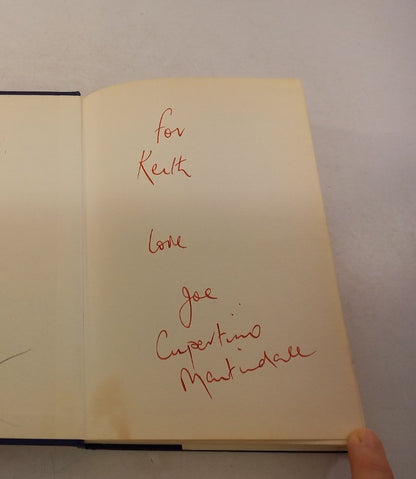 for
Keith
love
Joe
Cupertino
Martindale